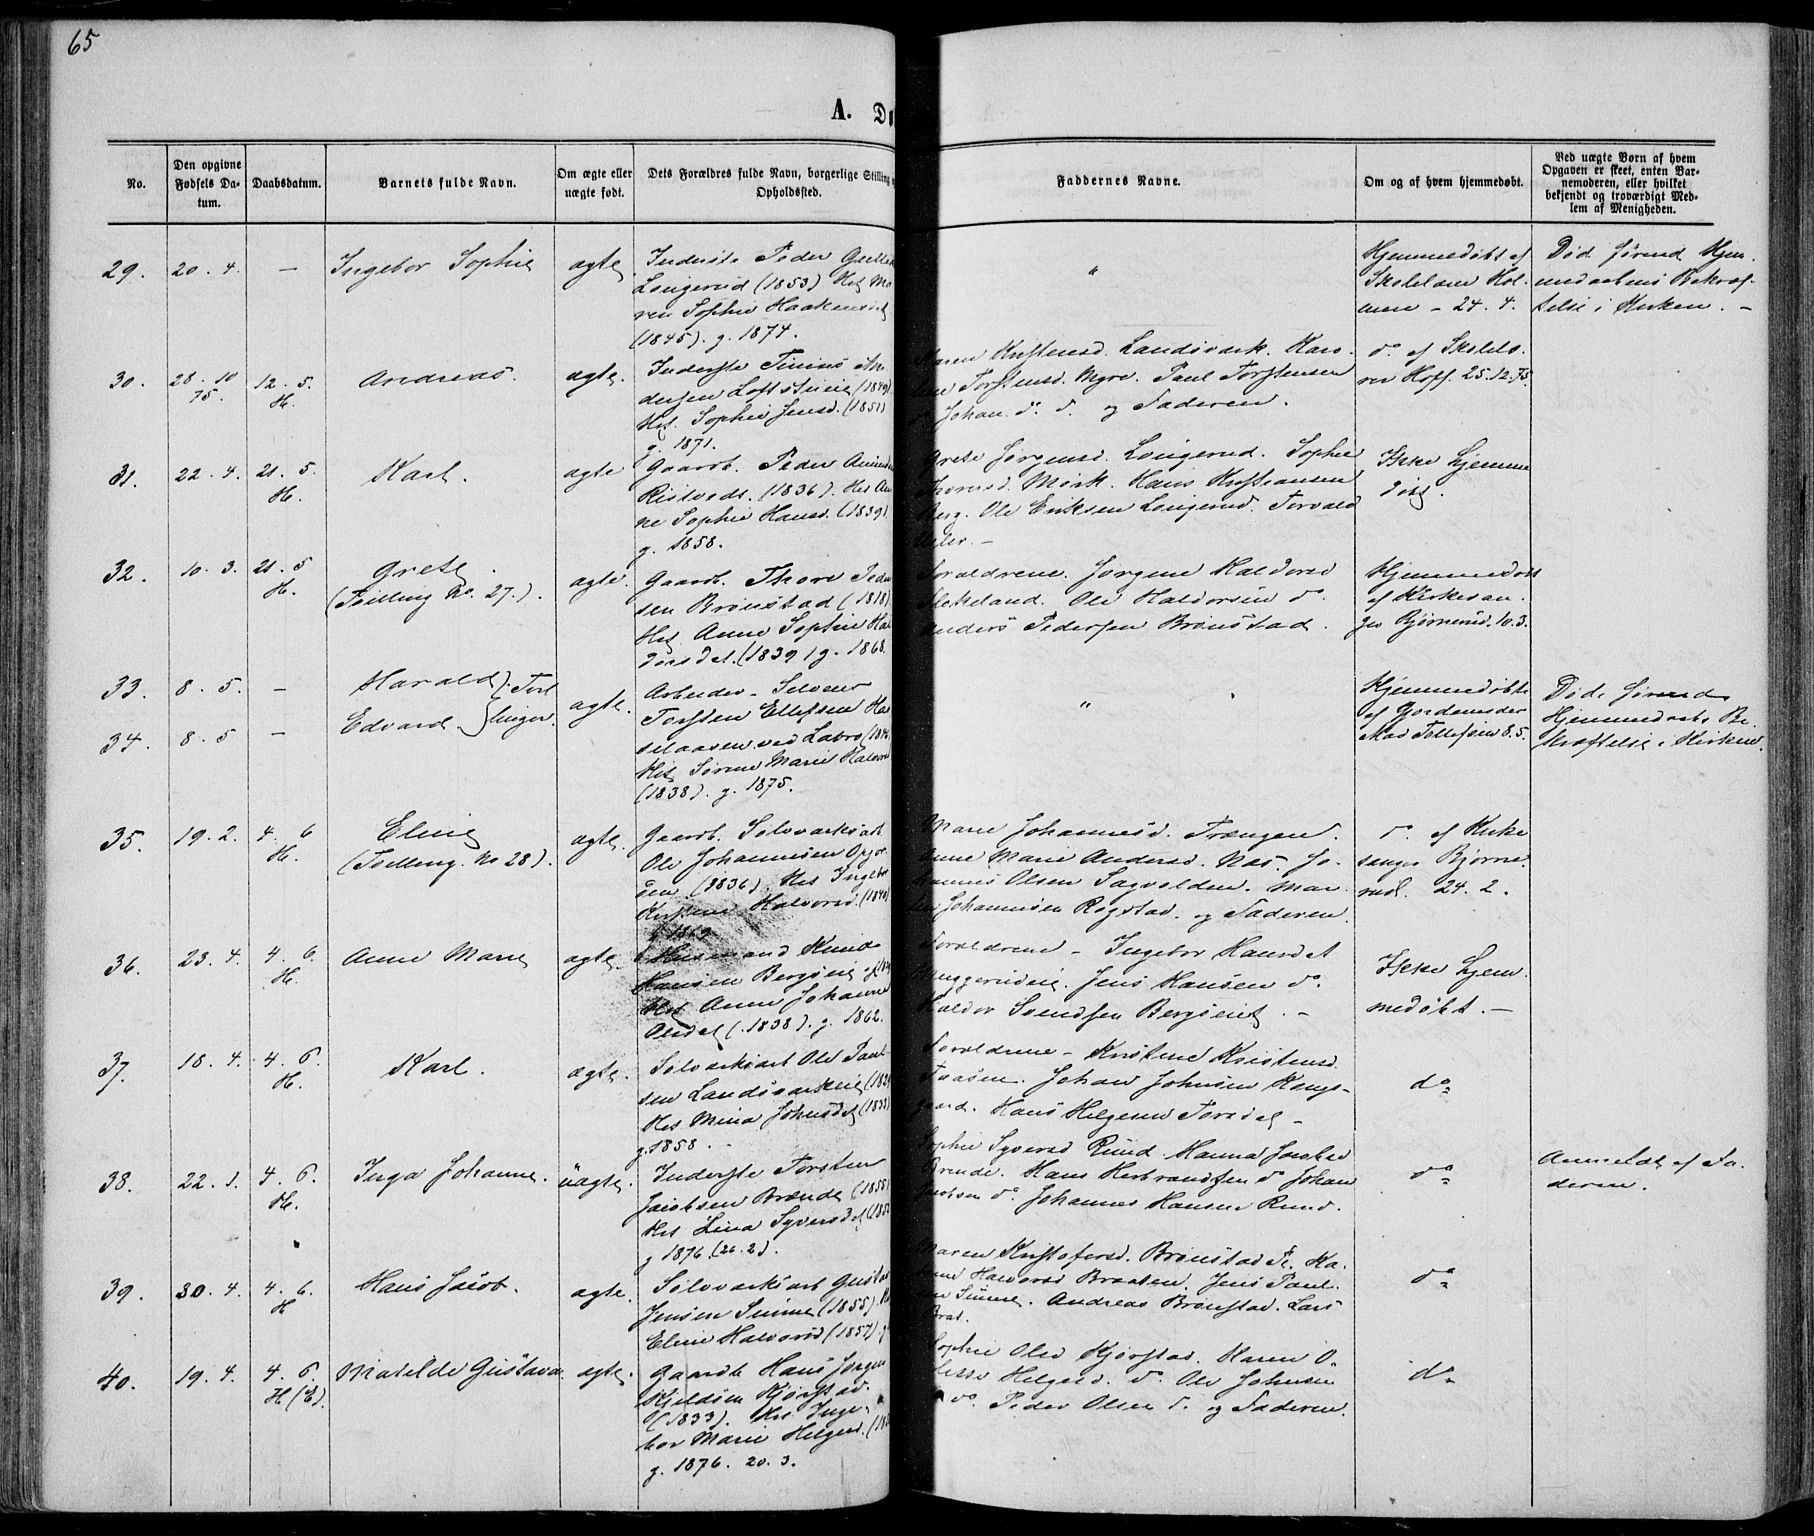 65
A. Dø
No.
Den opgivne Fødsels Da-tum.
Daabsdatum.
Barnets fulde Navn.
Om ægte eller uægte født.
Dets Forældres fulde Navn, borgerlige Stilling Opholdssted.
Faddernes Navne.
Om og af hvem hjemmedøbt.
Ved uægte Børn af hvem Opgaven er skeet, enten Bar-nemoderen, eller hvilket bekjendt og troværdigt Med-lem af Menigheden.
29. 20. 4. — Ingebor Sophie ægte.
Inderste Peder
Longerud (1853) Hst Ma
ren Sophie Haakensdt
(1845). g. 1874.
"
Hjemmedøbt af
Skolelærer Hol-
24. 4.
Død førend Hjem
medaabens Bekræf-
telse i Kirken. —
30. 28. 10 75. 12. 5. H. Andreas. ægte.
Inderste Tinius An
dersen Loftstuei (1849)
Hst. Sophie Jensd. (1851)
g. 1871.
Maren Kristensd. Landsværk. Karo
line Torstensd. Myre. Paul Torstensen
Johan do d. og Faderen.
do af Skolelæ
rer Hoff. 25.12.75.
31. 22. 4. 21. 5. H. Karl. ægte
Gaardb. Peder
Ristvedt. (1836). Hst An
ne Sophie Hansd. (1839)
g. 1858.
Grete Jørgensd. Longerud. Sophie
Thoresd. Mørk. Hans Kristiansen
Berg. Ole Eriksen Longerud. Torvald
Ikke hjemme
døbt.
32. 10. 3. 21. 5 H. Grete. (Tvilling No. 27.). ægte.
Gaardb. Thore Peder
sen Brønstad (1818)
Hst Anne Sophie Hal
dorsdat. (1839) g. 1868.
Forældrene. Jørgine Haldorsd
Ole Haldorsen do
Anders Pedersen Brønstad.
Hjemmedøbt
af Kirkesan-
ger Bjørnerud. 10.3.
33. 8. 5. — Harald
34. 8. 5 — Edvard.
Tvil
linger.
ægte.
Arbeider
Torsten Ellefsen Has
selaasen ved Labro (184
Hst Sørine Marie Halvors
(1838). g. 1875.
"
Hjemmedøbt
af Jordemoder
8.5.
Døde førend
Hjemmedaabs Be
kræftelse i Kirken.
35. 19. 2. 4. 6 H. Eline (Tvilling. No 28). ægte.
Gaardb. Sølvværksarb
Ole Johannesen
(1836). Hst Ingebor
Kirstine Halvorsd. (1840)
g. 1863
Marie Johannesd. Trængen.
Anne Marie Andersd. Næs. Jo-
hannes Olsen Sagvolden. Mar
Johannesen Rogstad. og Faderen.
do af Kirke
sanger Bjørne
rud. 24. 2.
36. 23. 4. 4. 6. H. Anne Marie ægte.
Husmand Knud
Hansen Bergseie
Hst Anne Johanne
Olsdat (1838). g. 1862.
Forældrene — Ingebor Hansdat
Jens Hansen do
Haldor Svendsen Bergseiet. —
Ikke hjem
medøbt. —
37. 18. 4. 4. 6. H. Karl. ægte.
Sølvværksarb Ole Paul
sen Landsværkeie (182
Hst Mina Johnsdat (1832)
g. 1858. —
Forældrene — Kristine Kristensd
Johan Johnsen Kongs-
gaard. Hans Helgesen —
do
38. 22. 1. 4. 6. H. Inga Johanne. uægte.
Inderste Torsten
Jacobsen Brænde (1855)
Hst Lina Syversdat (185
g 1876. (26. 2).
Sophie Syversd Rund. Hanna Jacobsd
Brende. Hans Herbrandsen do Johan
Jacobsen do. Johannes Hansen Rund.
do
Anmeldt af Fa-
deren.
39. 30. 4. 4. 6. H Hans Jacob. ægte.
Sølvværksarb Gustav
Jensen Simme (1855).
Eline Halvorsd (1857) g
Maren Kristofersd. Brønstad
Halvorsd Braaten. Jens Paul
Simme. Andreas Brønstad. Lars
Brat.
do
40. 19. 4. 4. 6. H (E). Matilde Gustava ægte.
Gaardb Hans Jørgen
Kjeldsen Kjørstad.
(1833). Hst Inge-
bor Marie Helgesd. (18
g. 1876. 20. 3.
Sophie Olsd Kjørstad. Karen O-
Helgesd. do Ole Johnsen
do. Peder Olsen d. og Faderen.
do